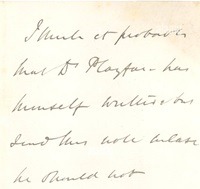 I think it probable
that Dr Playfair has
himself written but
send this note in case
he should not